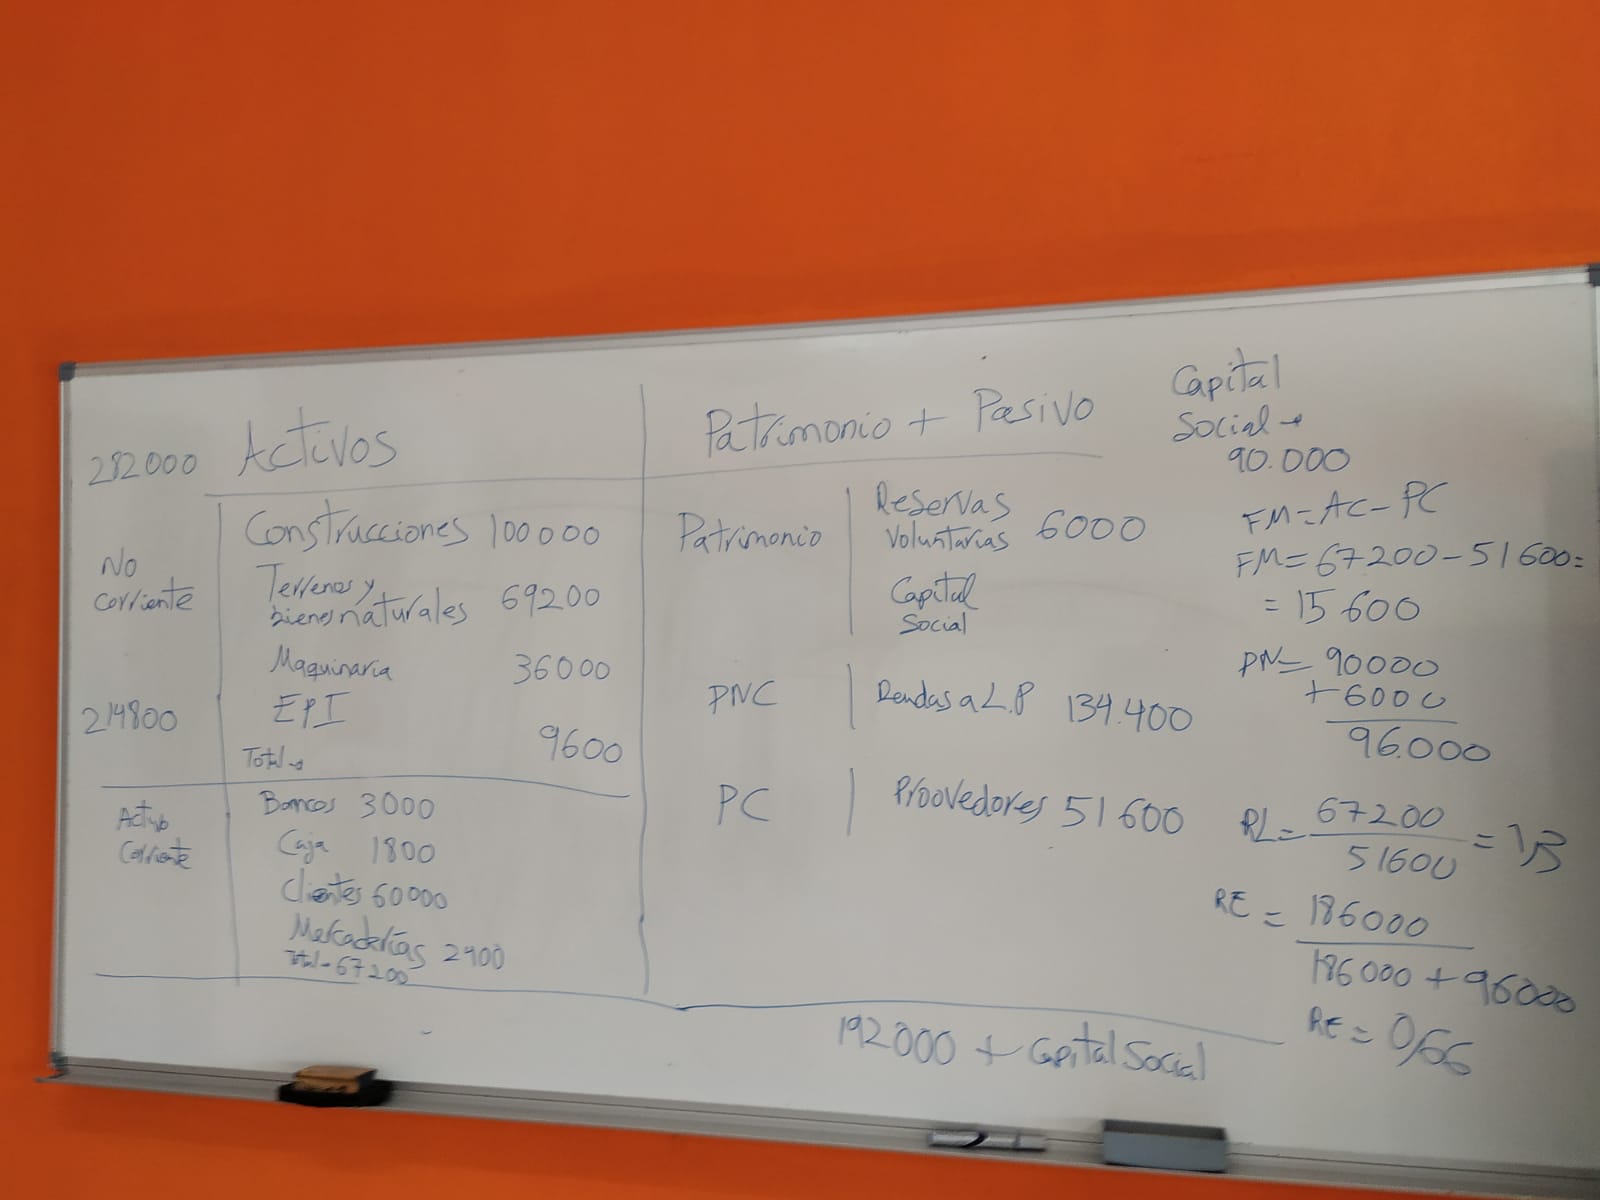 282000 Activos
No
corriente
214800
Construcciones 100000
Terrenos y
bienes naturales 69200
Maquinaria 36000
EPI
9600
Total →
Activo
corriente
Bancos 3000
Caja 1800
Clientes 60000
Mercaderías 2400
Total → 67200
Patrimonio + Pasivo
Patrimonio
Reservas
Voluntarias 6000
Capital
Social
PNC Deudas a L.P 134.400
PC Proovedores 51600
192000 + Capital Social
Capital
Social →
90.000
FM = AC - PC
FM = 67200 - 51600 =
= 15600
PN = 90000
+ 6000
96.000
RL = 67200 / 51600 = 1,3
RE = 186000 / 186000 + 96000
RE = 0,66